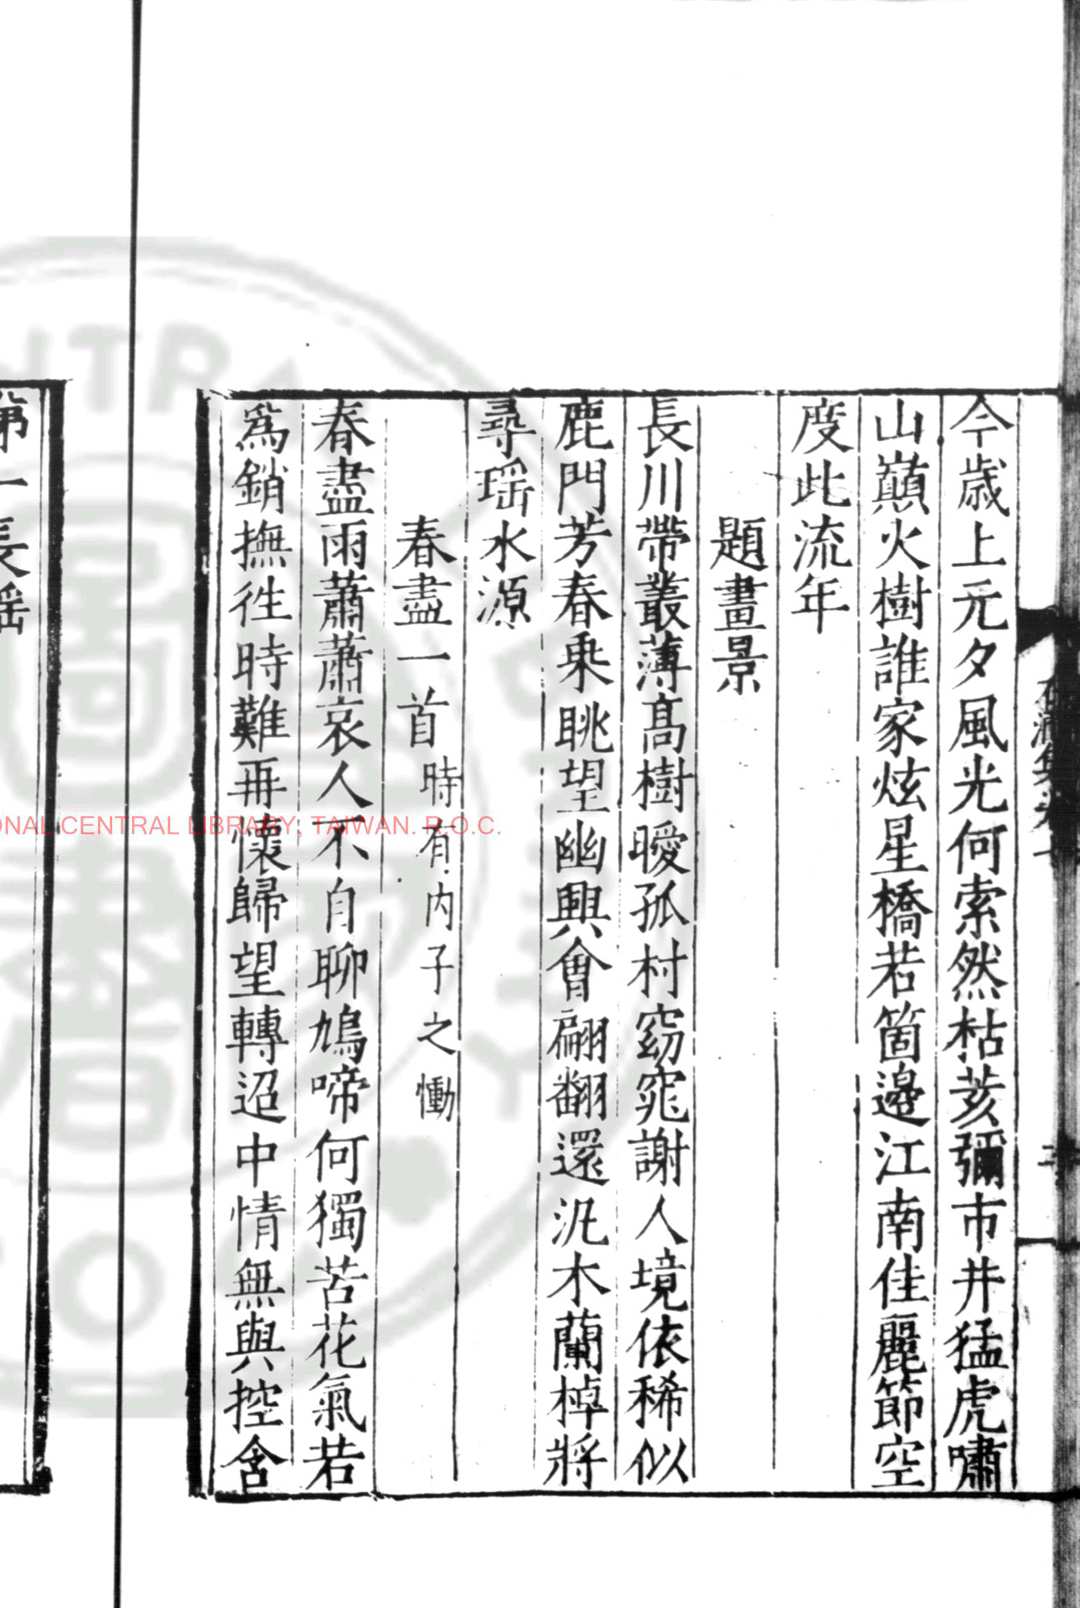 今歲上元夕風光何索然枯荄彌市井猛虎嘯
山巔火樹誰家炫星橋若箇邊江南佳麗節空
度此流年
題畫景
長川帶叢薄高樹曖孤村窈窕謝人境依稀似
鹿門芳春乘眺望幽興會翩翻還汎木蘭棹將
尋瑶水源
春盡一首時有内子之慟
春盡雨蕭蕭哀人不自聊鳩啼何獨苦花氣若
爲銷撫徃時難再懷歸望轉迢中情無與控含
第一長謡
NATIONAL CENTRAL LIBRARY, TAIWAN. R.O.C.